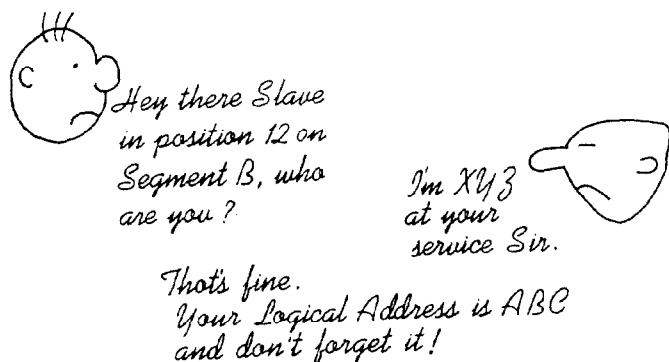 Hey there Slave
in position 12 on
Segment B, who
are you?
I'm XYZ
at your
service Sir.
That's fine.
Your Logical Address is ABC
and don't forget it!